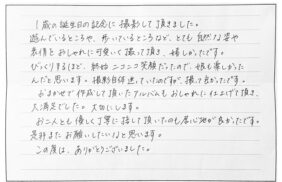 1歳の誕生日の記念に撮影して頂きました。
遊んでいるところや、歩いているところなど、とても自然な姿や
表情とおしゃれに可愛いく撮って頂き、嬉しかったです。
びっくりするほど、終始ニコニコ笑顔だったので、娘も楽しかった
んだと思います。撮影自体迷っていたのですが、撮って良かったです。
おまかせで作成して頂いたアルバムもおしゃれに仕上げて頂き、
大満足でした。大切にします。
お二人とも優しく丁寧に接して頂いたのも居心地が良かったです。
是非またお願いしたいなと思います。
この度は、ありがとうございました。